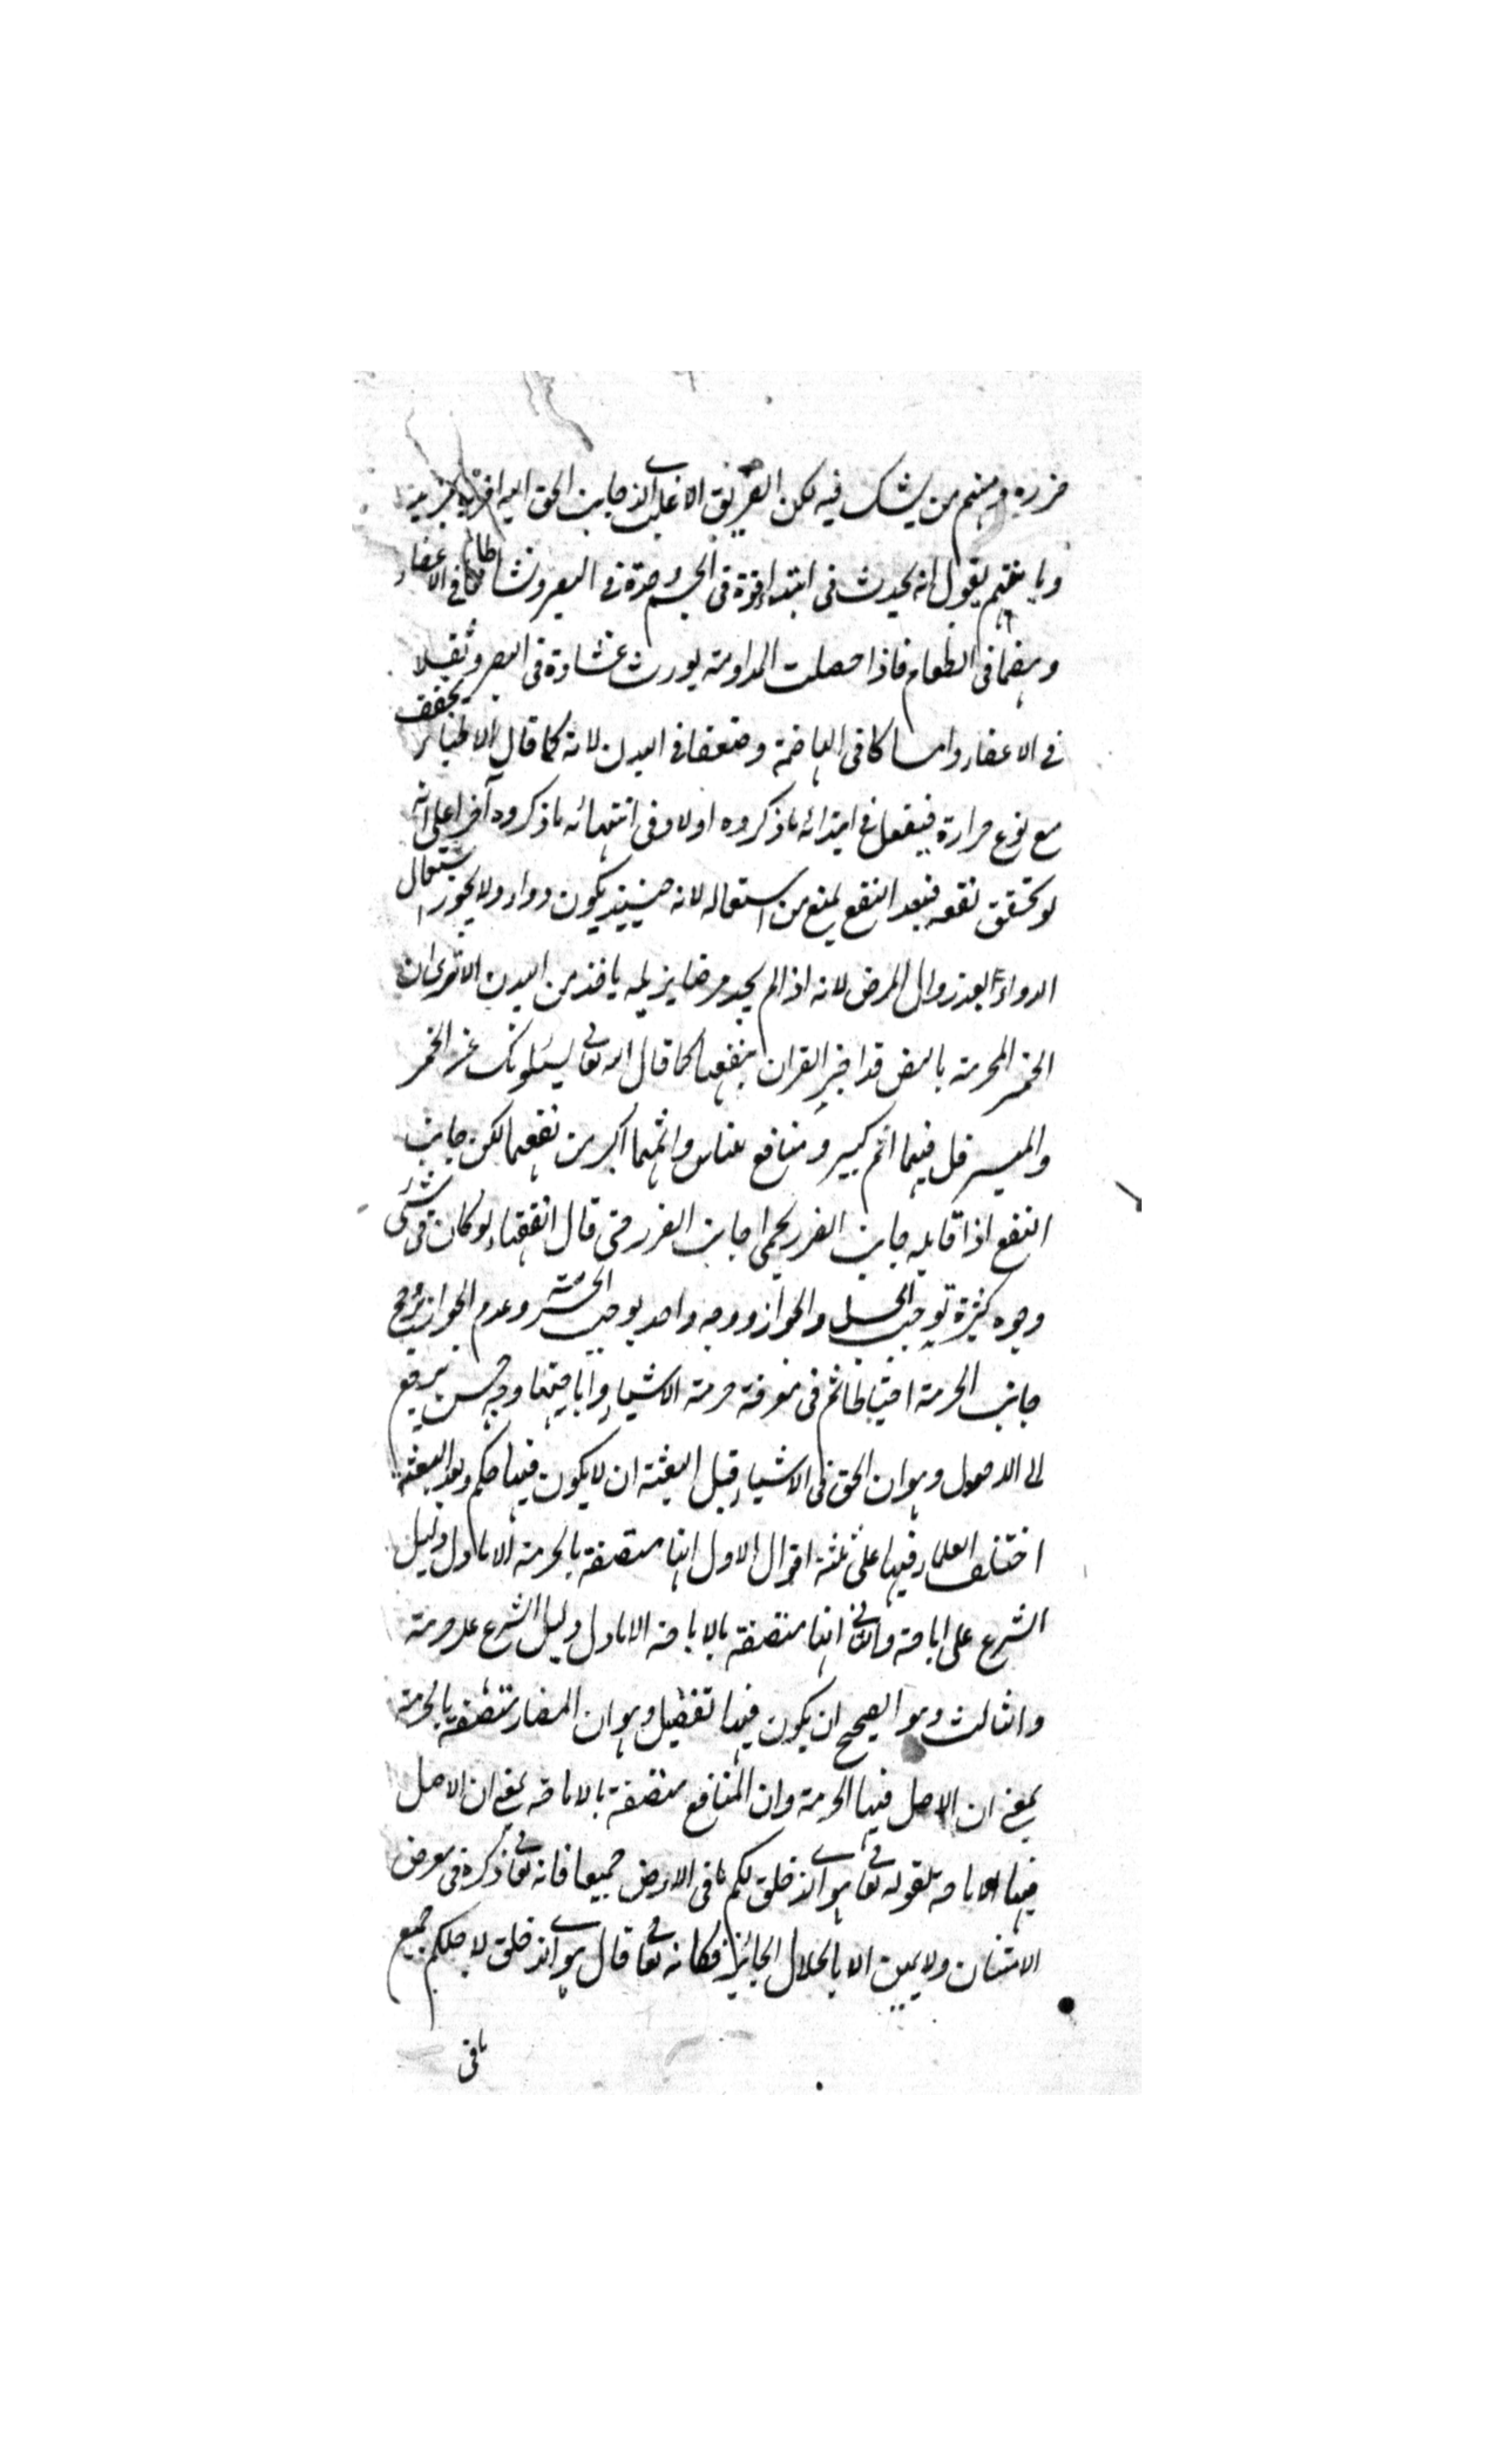 ضرره ومنهم من يشك فيه لكن الفريق الاغلب الذي جانب الحق اليه اقرب
وبا يقول انه يحدث فى ابتداء قوة فى الجسم وحدة فى البصر ونشاطا فى الاعضاء
وهضما فى الطعام فاذا حصلت المداومة يورث غشاوة فى البصر وثقلا
فى الاعضاء وامساكا فى الهاضمة وضعفا فى البدن لانه كما قال الاطباء يجفف
مع نوع حرارة فيفعل فى ابتدائه ما ذكروه اولا وفى انتهائه ما ذكروه آخرا على انه
لو تحقق نفعه فبعد النفع يمنع من استعماله لانه حينئذ يكون دواء ولا يجوز استعمال
الدواء بعد زوال المرض لانه اذا لم يجد مرضا يزيله ياخذ من البدن الا ترى ان
الخمر المحرمة بالنص قد اخبر القران بنفعها كما قال الله تعالى يسئلونك عن الخمر
والميسر قل فيهما اثم كبير ومنافع للناس واثمهما اكبر من نفعهما لكن جانب
النفع اذا قابله جانب الضرر يحمى جانب الضرر حتى قال الفقهاء لو كان فى شئ
وجوه كثيرة توجب الحل والجواز ووجه واحد يوجب الحرمة وعدم الجواز يرجح
جانب الحرمة احتياطا ثم فى معرفة حرمة الاشياء واباحتها وجه حسن يرجع
الى الاصول وهو ان الحق فى الاشياء قبل البعثة ان لا يكون فيها حكم وبعد البعثة
اختلف العلماء فيها على ثلثة اقوال الاول انها متصفة بالحرمة الا ما دل دليل
الشرع على اباحته والثانى انها متصفة بالاباحة الا ما دل دليل الشرع على حرمته
والثالث وهو الصحيح ان يكون فيها تفصيل وهو ان المضار متصفة بالحرمة
بمعنى ان الاصل فيها الحرمة وان المنافع متصفة بالاباحة بمعنى ان الاصل
فيها الاباحة لقوله تعالى هو الذى خلق لكم ما فى الارض جميعا فانه تعالى ذكره فى معرض
الامتنان ولا يمن الا بالحلال الجائز فكانه تعالى قال هو الذى خلق لاجلكم جميع
ما فى